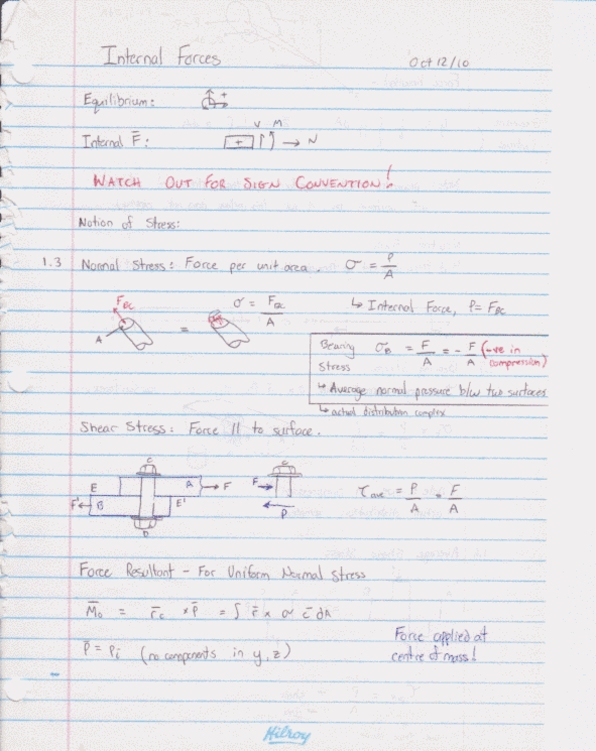 Internal Forces
Oct 12/10
Equilibrium: +
Internal F̄: + V M → N
WATCH OUT FOR SIGN CONVENTION!
Notion of Stress:
1.3 Normal Stress: Force per unit area. σ = P/A
F_BC
A
=
σ = F_BC/A
↳ Internal Force, P = F_BC
Bearing Stress σ_B = F/A = - F/A (-ve in compression)
↳ Average normal pressure b/w two surfaces
↳ actual distribution complex
Shear Stress: Force || to surface.
C
E A → F
F' ← B E'
D
C
F →
← P
τ_ave = P/A = F/A
Force Resultant - For Uniform Normal Stress
M̄o = r̄c × P̄ = ∫ r̄ × σ ī dA
P̄ = Pī (no components in y, z)
Force applied at
centre of mass!
Hilroy